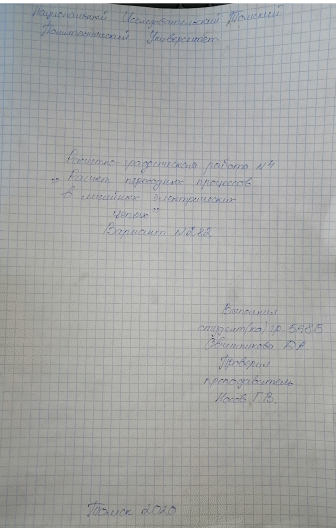 Национальный Исследовательский Томский
Политехнический Университет
Расчетно-графическая работа №4
"Расчет переходных процессов
в линейных электрических
цепях"
Вариант №282
Выполнил
студент(ка) гр. 5А8Б
Овчинникова Д.А
Проверил
преподаватель
Носов Г.В.
Томск 2020